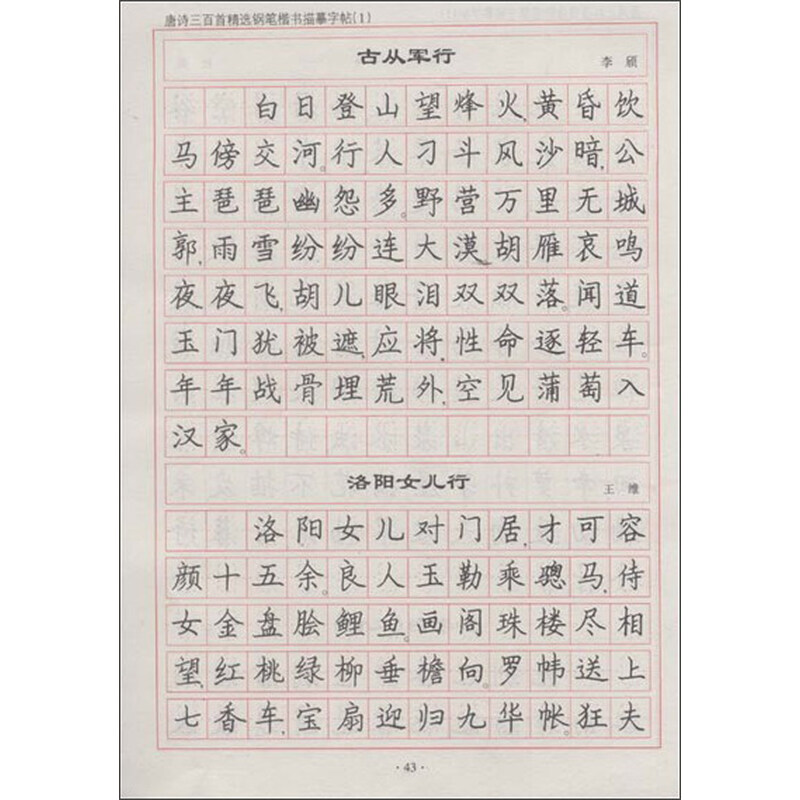 唐诗三百首精选钢笔楷书描摹字帖(1)
古从军行
李颀
白日登山望烽火,黄昏饮
马傍交河。行人刁斗风沙暗,公
主琵琶幽怨多。野营万里无城
郭,雨雪纷纷连大漠。胡雁哀鸣
夜夜飞,胡儿眼泪双双落。闻道
玉门犹被遮,应将性命逐轻车。
年年战骨埋荒外,空见蒲萄入
汉家。
洛阳女儿行
王维
洛阳女儿对门居,才可容
颜十五余。良人玉勒乘骢马,侍
女金盘脍鲤鱼。画阁珠楼尽相
望,红桃绿柳垂檐向。罗帏送上
七香车,宝扇迎归九华帐。狂夫
·43·